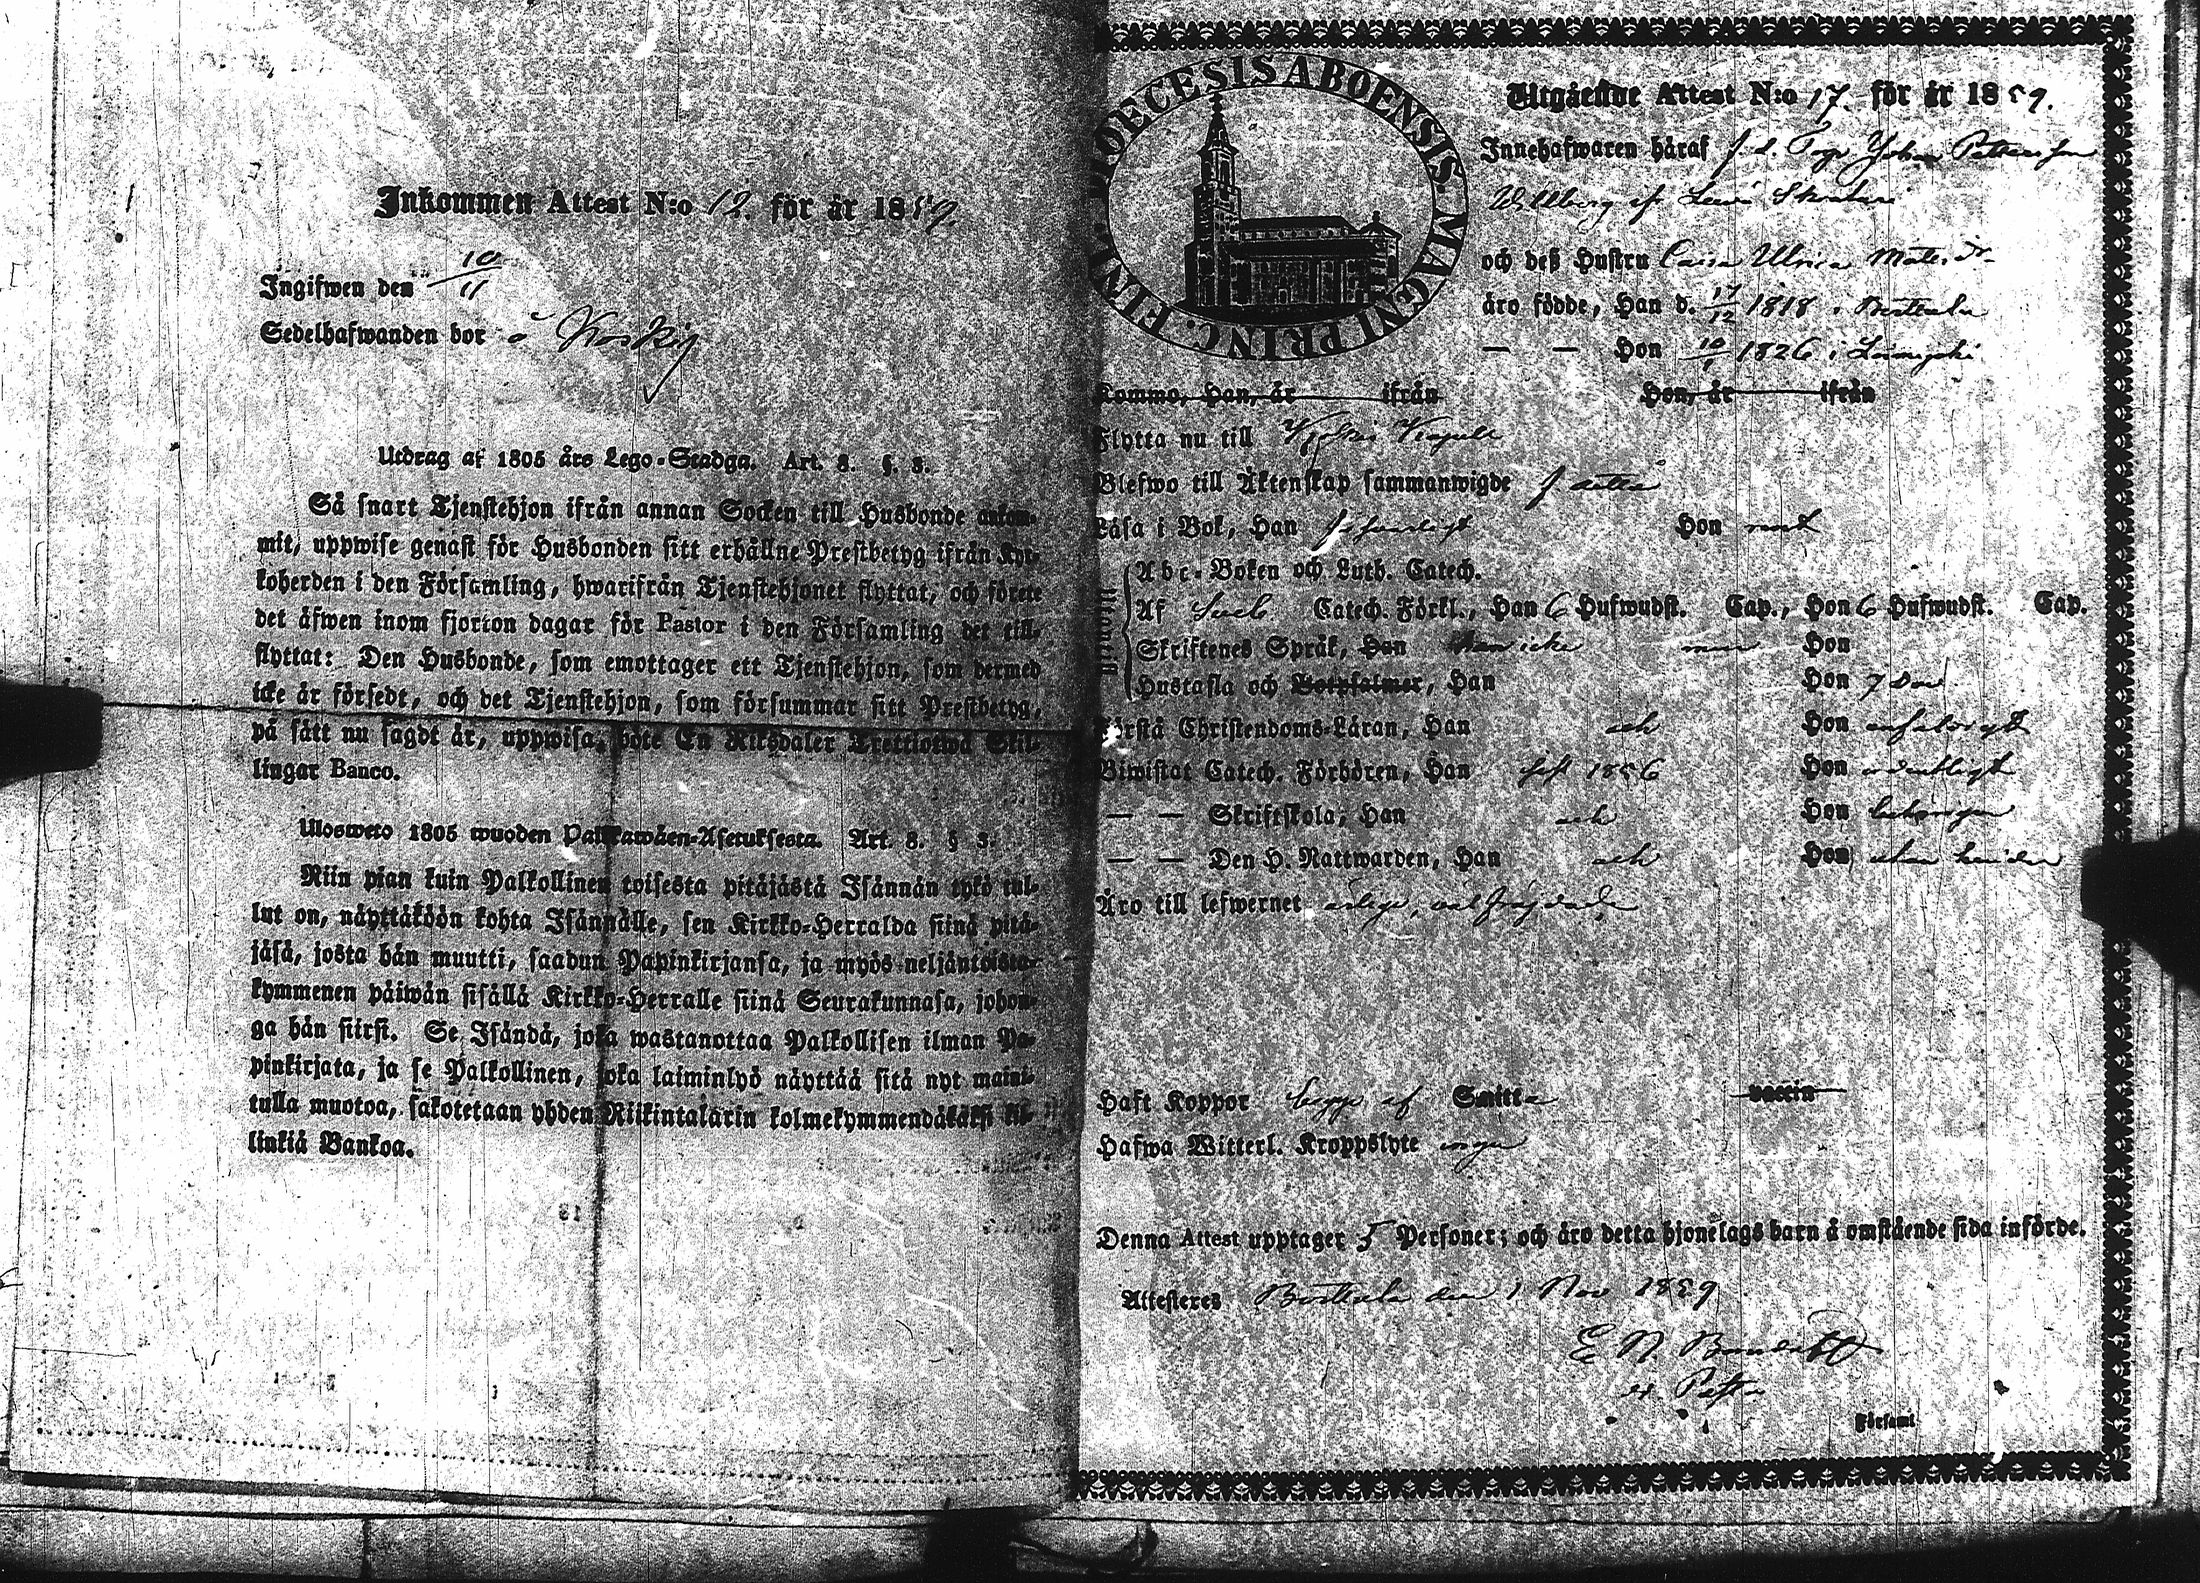 Inkommen Attest N:o 12. för år 1859.
Ingifwen den 10/11
Sedelhafwanden bor å Koskis
Utdrag af 1805 års Lego-Stadga. Art. 8. §. 3.
Så snart Tjenstehjon ifrån annan Socken till Husbonde ankom-
mit, uppwise genast för Husbonden sitt erhållne Prestbetyg ifrån Kyr-
koherden i den Församling, hwarifrån Tjenstehjonet flyttat, och förete
det äfwen inom fjorton dagar för Pastor i den Församling det till-
flyttat: Den Husbonde, som emottager ett Tjenstehjon, som dermed
icke är försedt, och det Tjenstehjon, som försummar sitt Prestbetyg,
på sätt nu sagdt är, uppwisa, böte En Riksdaler Trettiotwå Skil-
lingar Banco.
Ulosweto 1805 wuoden Palkkawäen-Asetuksesta. Art. 8. § 3.
Niin pian kuin Palkollinen toisesta pitäjästä Isännän tykö tul-
lut on, näyttäköön kohta Isännälle, sen Kirkko-Herralda siinä pitä-
jäsä, josta hän muutti, saadun Papinkirjansa, ja myös neljäntoista-
kymmenen päiwän sisällä Kirkko-Herralle siinä Seurakunnasa, johon-
ga hän siirsi. Se Isändä, joka wastanottaa Palkollisen ilman Pa-
pinkirjata, ja se Palkollinen, joka laiminlyö näyttää sitä nyt maini-
tulla muotoa, sakotetaan yhden Riikintalarin kolmekymmendäkaksi kil-
linkiä Bankoa.
FINL. DIOECESIS ABOENSIS. MAGNI PRINC.
Utgående Attest N:o 17. för år 1859.
Innehafwaren häraf f. d. Torp Johan Pettersson
Willberg
och deß Hustru Caisa Ulrica Matsdr
äro födde, Han d. 17/12 1818 i
— — Hon 10/1 1826 i Loimijoki
Kommo, Han, år ifrån Hon, år ifrån
Flytta nu till Koskis Kapell
Blefwo till Äktenskap sammanwigde
Läsa i Bok, Han Hon
Utantill
Abc-Boken och Luth. Catech.
Af Sveb Catech. Förkl., Han 6 Hufwudst. Cap., Hon 6 Hufwudst. Cap.
Skriftenes Språk, Han icke Hon
Hustafla och Botpsalmer, Han Hon
Förstå Christendoms-Läran, Han och Hon
Biwistat Catech. Förhören, Han 1856 Hon ordentligt
— — Skriftskola, Han och Hon behörigen
— — Den H. Nattwarden, Han och Hon utan hinder
Äro till lefwernet ärlige, väl frejdade
Haft Koppor begge af Smitta vaccin
Hafwa Witterl. Kroppslyte ingen
Denna Attest upptager 5 Personer; och äro detta hjonelags barn å omstående sida införde.
Attesteres den 1 Nov 1859
E N
Församl